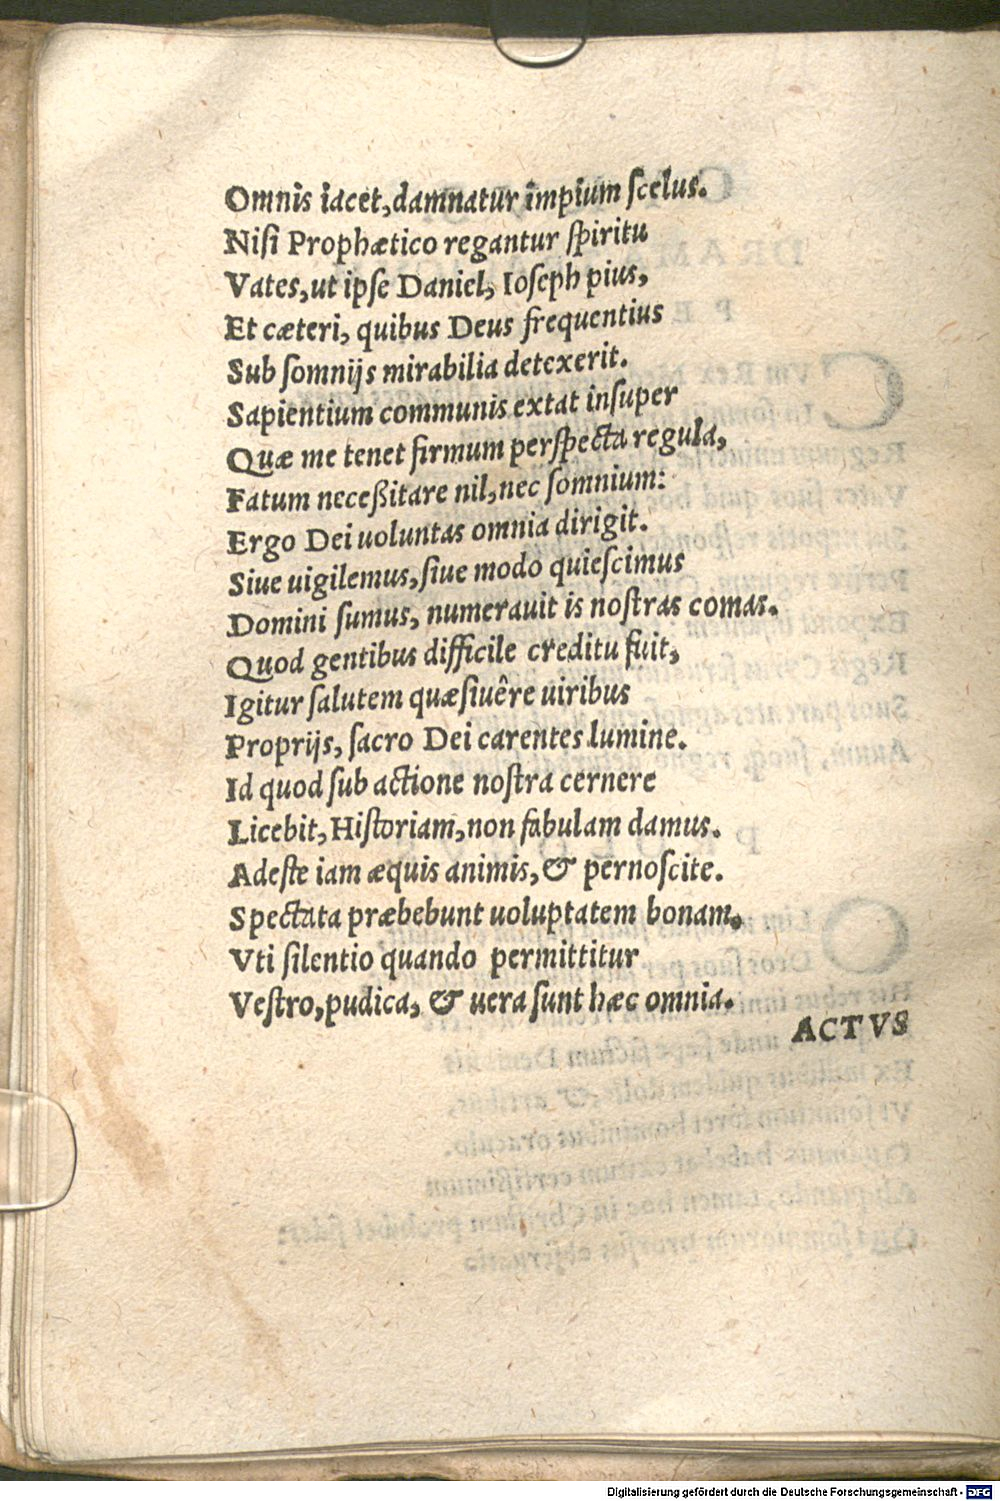 Omnis iacet, damnatur impium ſcelus.
Niſi Prophætico regantur ſpiritu
Vates, ut ipſe Daniel, Ioſeph pius,
Et cæteri, quibus Deus frequentius
Sub ſomnijs mirabilia detexerit.
Sapientium communis extat inſuper
Quæ me tenet firmum perſpecta regula,
Fatum neceßitare nil, nec ſomnium:
Ergo Dei uoluntas omnia dirigit.
Siue uigilemus, ſiue modo quieſcimus
Domini ſumus, numerauit is noſtras comas.
Quod gentibus difficile creditu fuit,
Igitur ſalutem quæſiuêre uiribus
Proprijs, ſacro Dei carentes lumine.
Id quod ſub actione noſtra cernere
Licebit, Hiſtoriam, non fabulam damus.
Adeſte iam æquis animis, & pernoſcite.
Spectata præbebunt uoluptatem bonam.
Vti ſilentio quando permittitur
Veſtro, pudica, & uera ſunt hæc omnia.
ACTVS
Digitalisierung gefördert durch die Deutsche Forschungsgemeinschaft - DFG